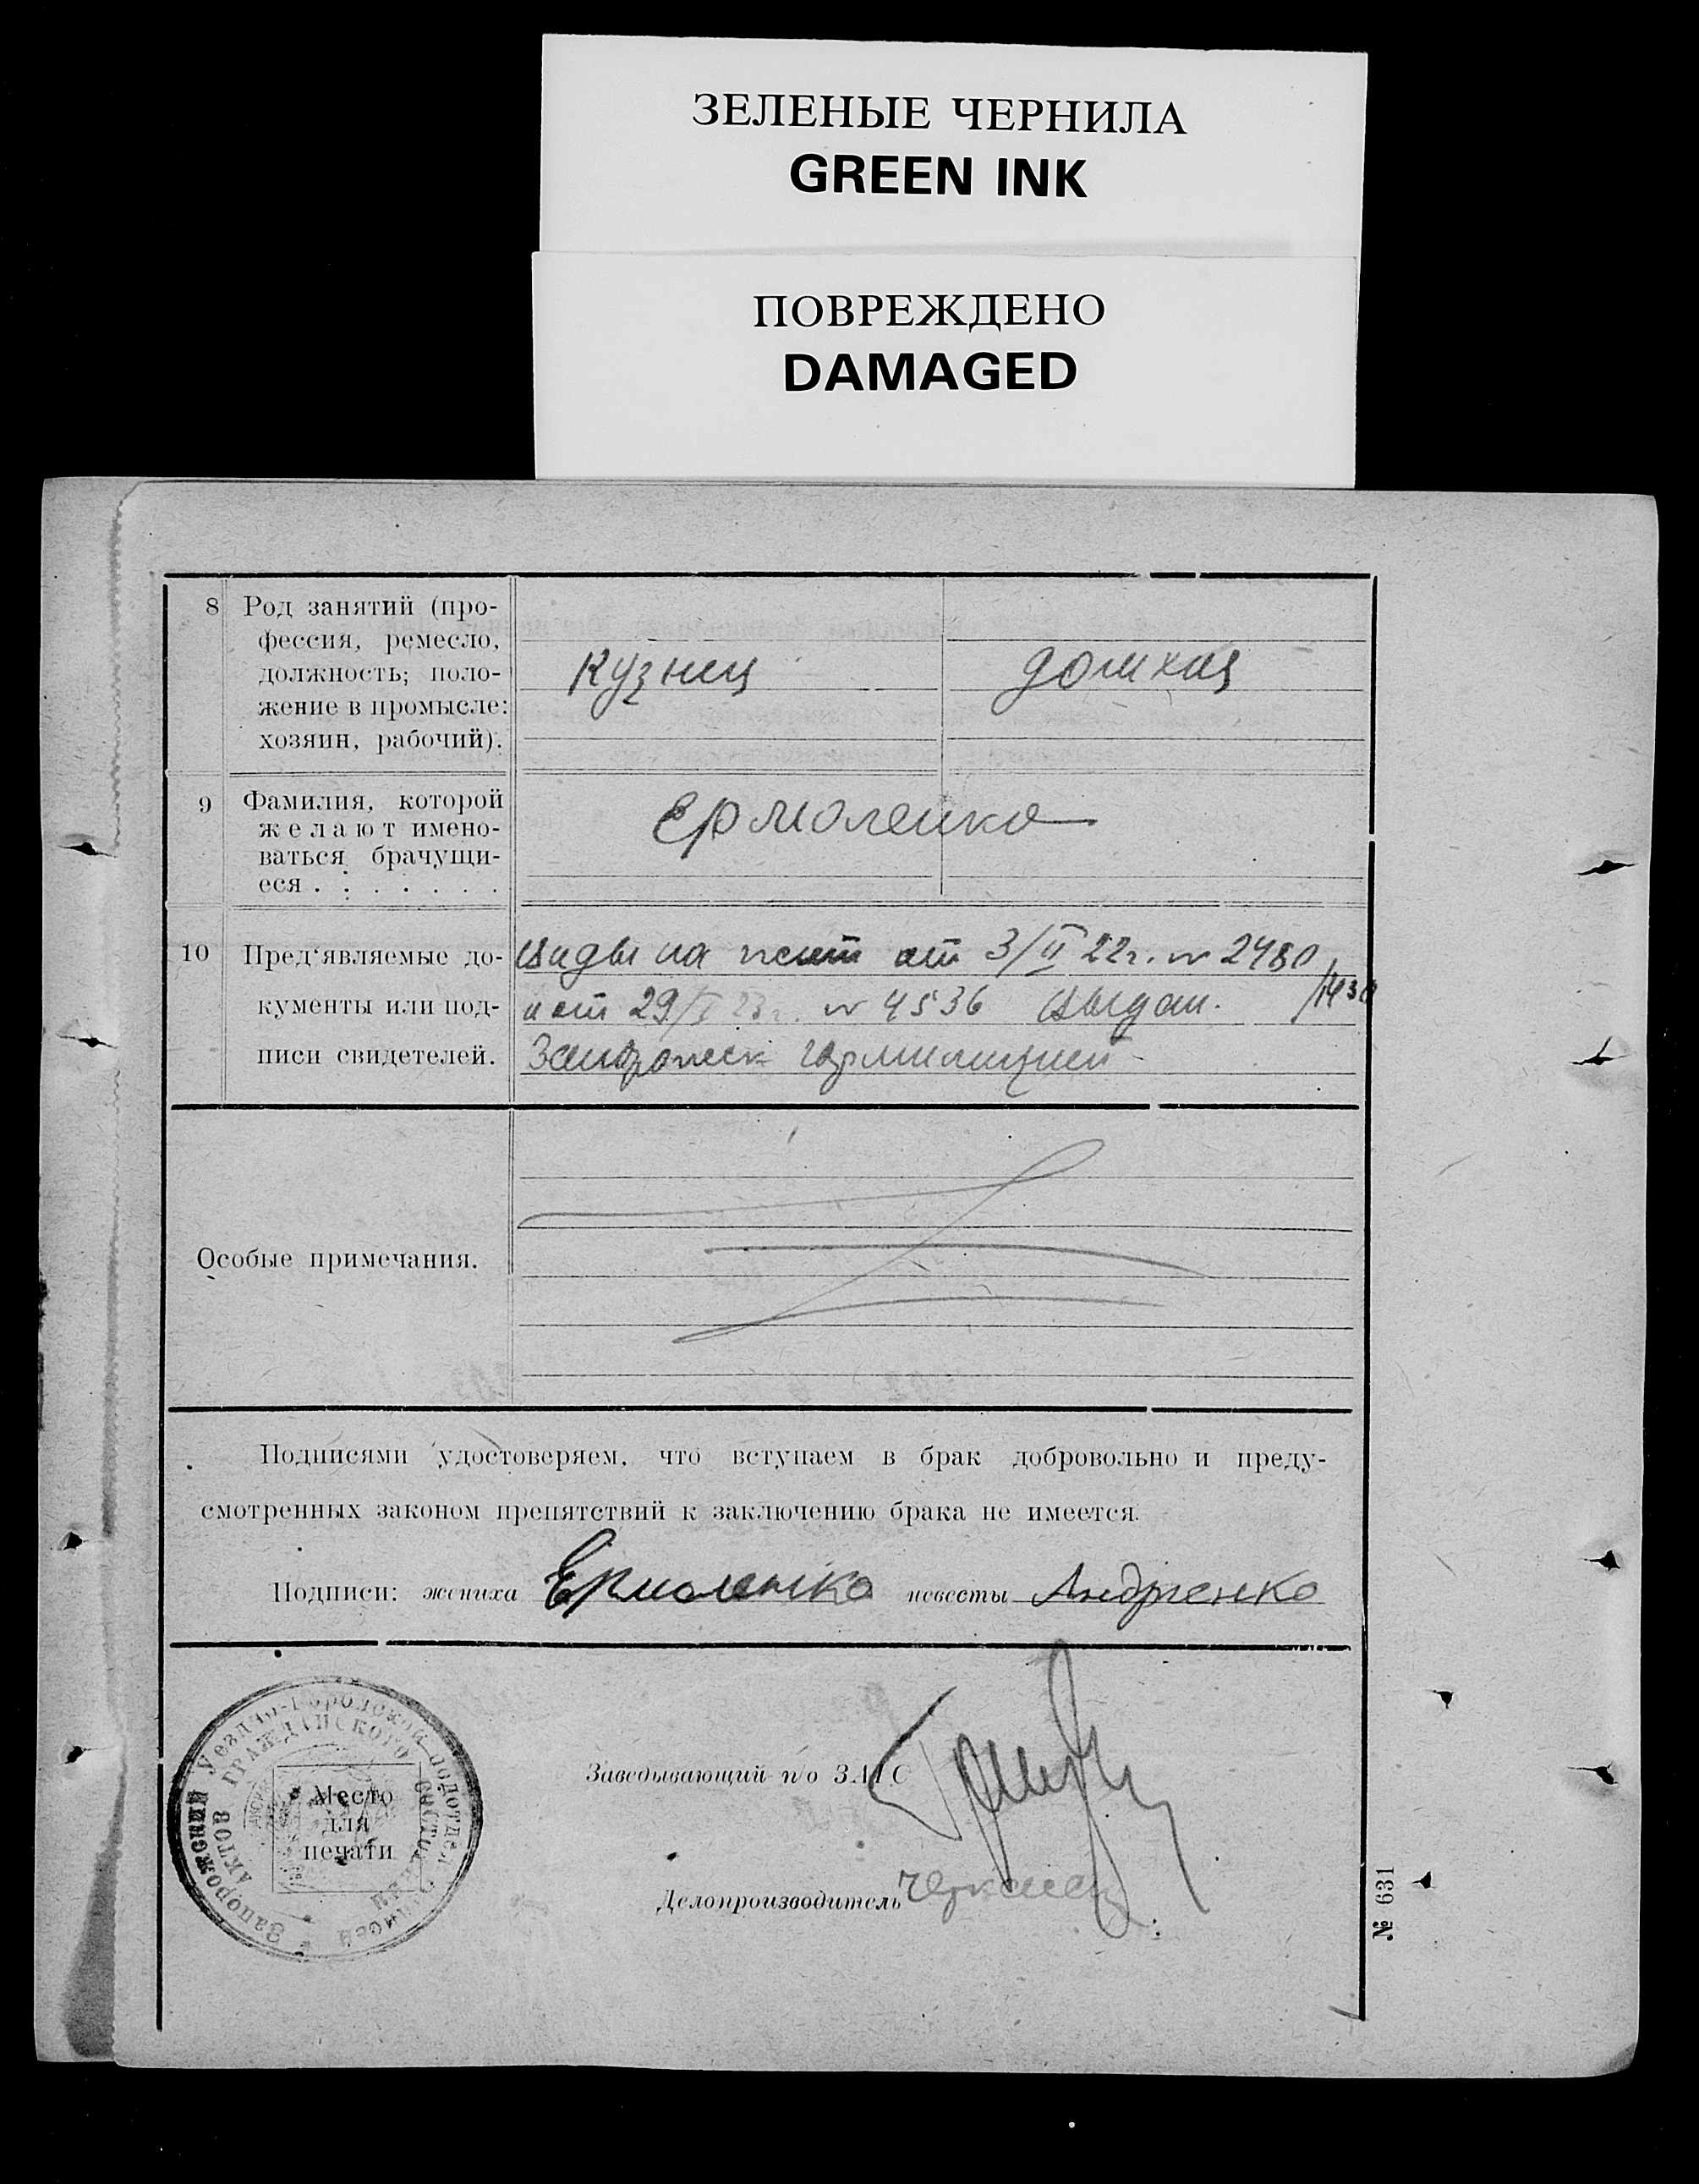 ЗЕЛЕНЫЕ ЧЕРНИЛА
GREEN INK
ПОВРЕЖДЕНО
DAMAGED
8 Род занятий (про-
фессия, ремесло,
должность; поло-
жение в промысле:
хозяин, рабочий).
кузнец
домхоз
9 Фамилия, которой
желают имено-
ваться брачущи-
еся . . . . . . .
Ермоленко
10 Пред‘являемые до-
кументы или под-
писи свидетелей.
виды на жит от 3/II 22г. № 2480
/1430
и от 29/I 23г. № 4536 выдан.
гормилицией
Особые примечания.
Подписями удостоверяем, что вступаем в брак добровольно и преду-
смотренных законом препятствий к заключению брака не имеется.
Подписи: жениха Ермоленко невесты Андриенко
Запорожский Уездно-Городской подотдел
ГРАЖДАНСКОГО СОСТОЯНИЯ
АКТОВ
Место
для
печати
Заведывающий п/о ЗАГС
Делопроизводитель
№ 631